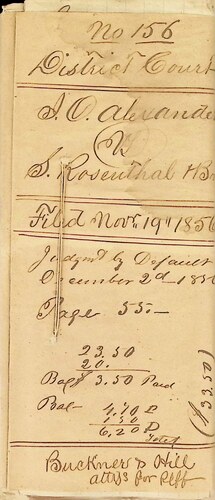 No 156
District Court
I. O. Alexander
vs
S. Rosenthal & Bro
Filed Novr. 19th 1856
Judgmt by Default
December 2d 1856
Page 55.—
23.50
20.
Bal 3.50 Paid
Bal—
4.70
1.50
6.20
(33.50)
Buckner & Hill
attys for Plff